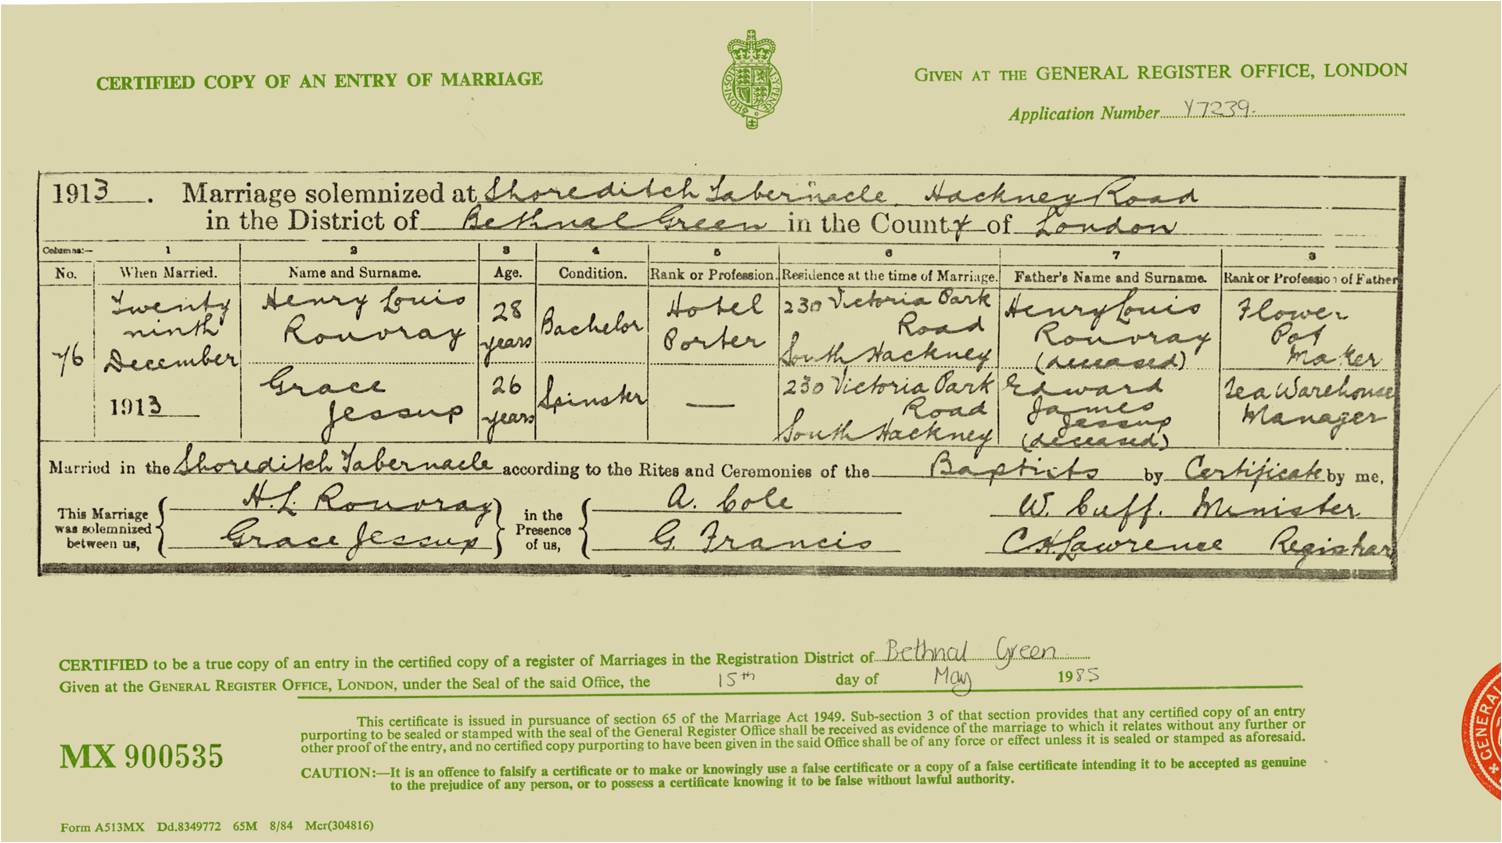 CERTIFIED COPY OF AN ENTRY OF MARRIAGE
GIVEN AT THE GENERAL REGISTER OFFICE, LONDON
Application Number Y7239
1913. Marriage solemnized at Shoreditch Tabernacle Hackney Road
in the District of Bethnal Green in the County of London
Columns:— 1 2 3 4 5 6 7 8
No. When Married. Name and Surname. Age. Condition. Rank or Profession. Residence at the time of Marriage. Father's Name and Surname. Rank or Profession of Father
76
Twenty
ninth
December
1913
Henry Louis
Rouvray
28
years
Bachelor
Hotel
Porter
230 Victoria Park
Road
South Hackney
Henry Louis
Rouvray
(deceased)
Flower
Pot
Maker
Grace
Jessup
26
years
Spinster
—
230 Victoria Park
Road
South Hackney
Edward
James
Jessup
(deceased)
Tea Warehouse
Manager
Married in the Shoreditch Tabernacle according to the Rites and Ceremonies of the Baptists by Certificate by me,
This Marriage
was solemnized
between us,
H. L. Rouvray
Grace Jessup
in the
Presence
of us,
A. Cole
G. Francis
W. Cuff. Minister
C H Lawrence Registrar
CERTIFIED to be a true copy of an entry in the certified copy of a register of Marriages in the Registration District of Bethnal Green
Given at the GENERAL REGISTER OFFICE, LONDON, under the Seal of the said Office, the 15th day of May 1985
MX 900535
This certificate is issued in pursuance of section 65 of the Marriage Act 1949. Sub-section 3 of that section provides that any certified copy of an entry
purporting to be sealed or stamped with the seal of the General Register Office shall be received as evidence of the marriage to which it relates without any further or
other proof of the entry, and no certified copy purporting to have been given in the said Office shall be of any force or effect unless it is sealed or stamped as aforesaid.
CAUTION:—It is an offence to falsify a certificate or to make or knowingly use a false certificate or a copy of a false certificate intending it to be accepted as genuine
to the prejudice of any person, or to possess a certificate knowing it to be false without lawful authority.
Form A513MX Dd.8349772 65M 8/84 Mcr(304816)
GENERAL